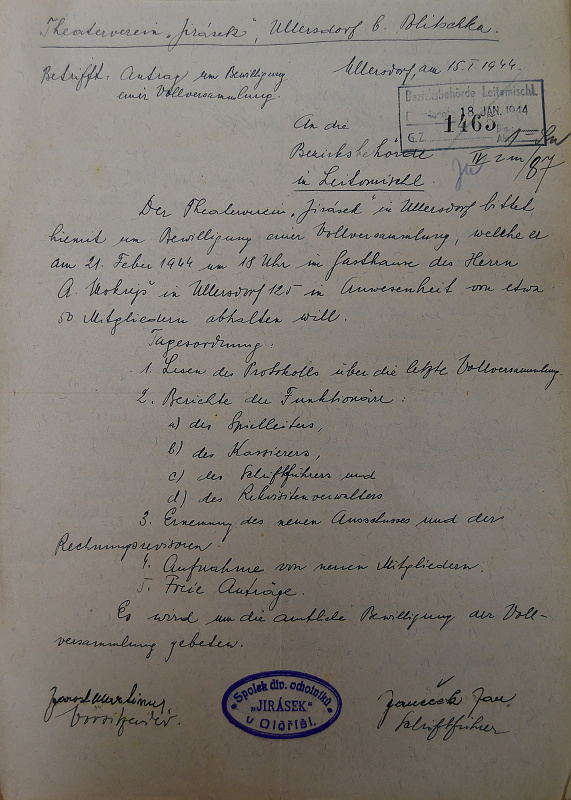 Theaterverein „Jirásek“, Ullersdorf b. Politschka.
Betrifft: Antrag um Bewilligung
einer Vollversammlung.
Ullersdorf, am 15.I.1944.
Bezirksbehörde Leitomischl.
18. JAN. 1944
G.Z. 1465
An die
Bezirksbehörde
in Leitomischl.
Der Theaterverein „Jirásek“ in Ullersdorf bittet
hiemit um Bewilligung einer Vollversammlung, welche er
am 21. Feber 1944 um 18 Uhr im Gasthause des Herrn
A. Mokrejš in Ullersdorf 125 in Anwesenheit von etwa
50 Mitgliedern abhalten will.
Tagesordnung:
1. Lesen des Protokolls über die letzte Vollversammlung
2. Berichte der Funktionäre:
a) des Spielleiters,
b) des Kassierers,
c) des Schriftführers und
d) des Rekwisitenverwalters
3. Ernennung des neuen Ausschusses und der
Rechnungsrevisoren.
4. Aufnahme von neuen Mitgliedern.
5. Freie Anträge.
Es wird um die amtliche Bewilligung der Voll-
versammlung gebeten.
Vorsitzender.
Spolek div. ochotníků
„JIRÁSEK“
v Oldřiši.
Janeček Jan
Schriftführer